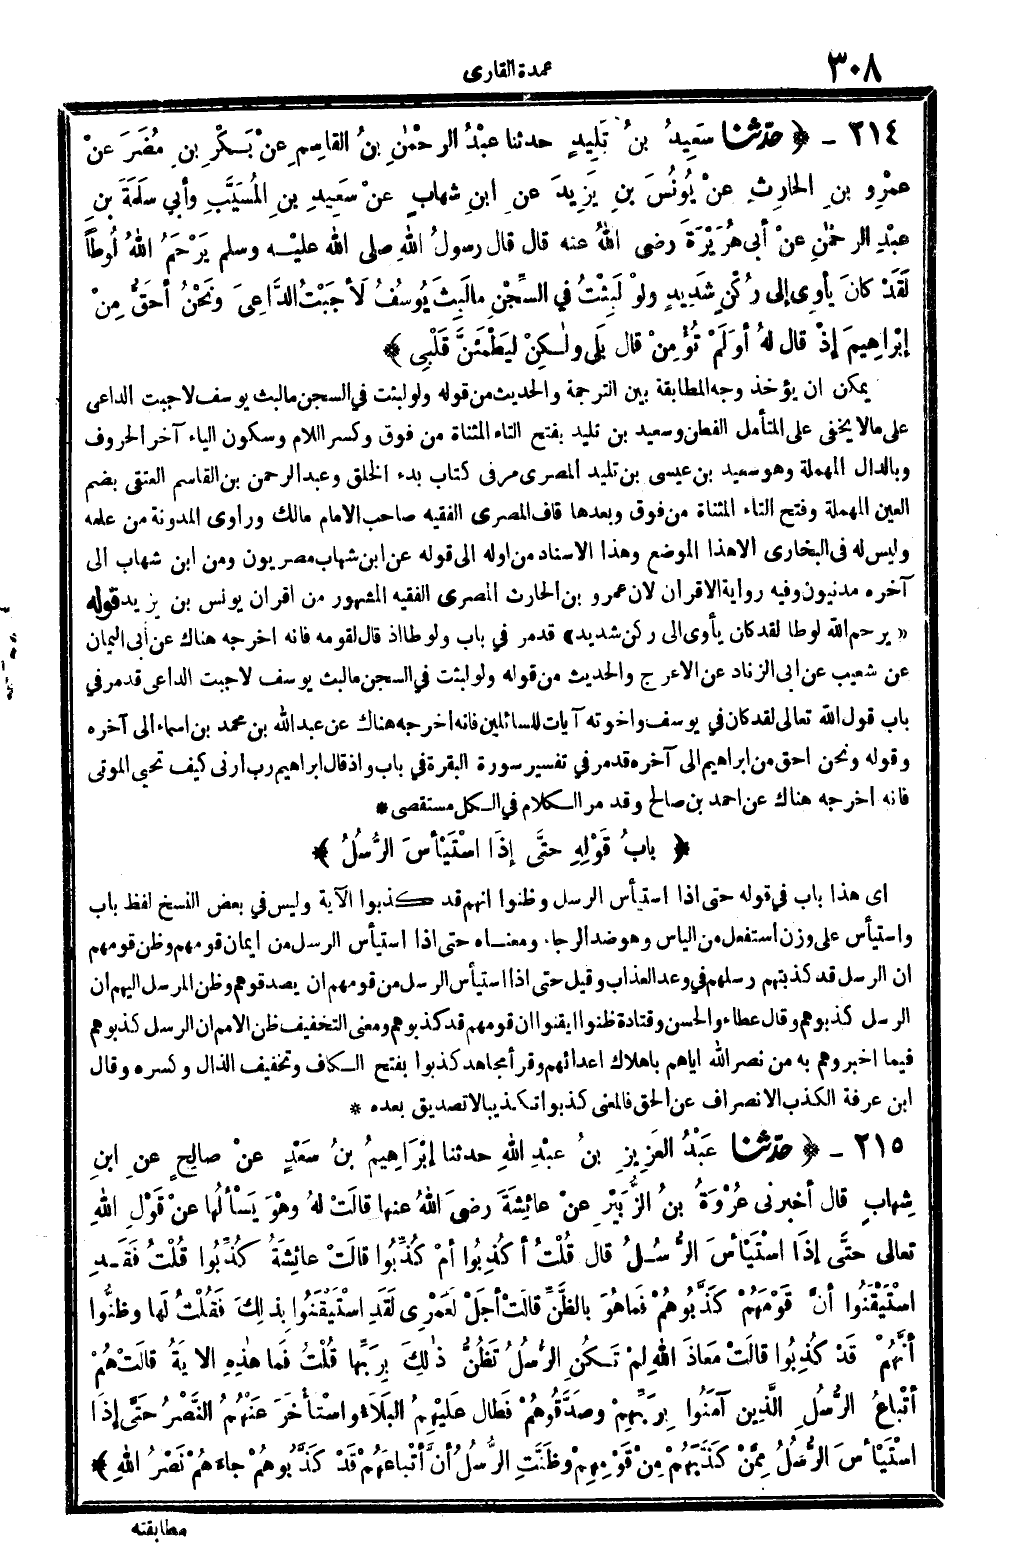 ٣٠٨
عمدة القارى
٢١٤ - ﴿ حدّثنا سَعِيدُ بنُ تَلِيدٍ حدثنا عبْدُ الرحْمٰنِ بنُ القاسِمِ عنْ بَكْرِ بنِ مُضَرَ عنْ
عمْرِو بنِ الحارِثِ عنْ يُونُسَ بنِ يَزِيدَ عنِ ابنِ شهابٍ عنْ سَعِيدِ بنِ المُسَيَّبِ وأبي سلَمَةَ بنِ
عبْدِ الرحْمٰنِ عنْ أبى هُرَيْرَةَ رضى اللهُ عنه قال قال رسولُ اللهِ صلى الله عليْه وسلم يَرْحَمُ اللهُ لُوطاً
لَقَدْ كانَ يأوِى إلى رُكْنٍ شَدِيدٍ ولوْ لَبِثْتُ في السِّجْنِ مالَبِثَ يُوسُفُ لَأجَبْتُ الدَّاعِىَ ونَحْنُ أحَقُّ مِنْ
إبْرَاهِيمَ إذْ قال لهُ أوَلَمْ تُؤْمِنْ قال بَلَى ولٰكِنْ لِيَطْمَئِنَّ قَلْبِى ﴾
يمكن ان يؤخذ وجه المطابقة بين الترجمة والحديث من قوله ولو لبثت في السجن مالبث يوسف لاجبت الداعى
على مالا يخفى على المتأمل الفطن وسعيد بن تليد بفتح التاء المثناة من فوق وكسر اللام وسكون الياء آخر الحروف
وبالدال المهملة وهو سعيد بن عيسى بن تليد المصرى مر فى كتاب بدء الخلق وعبد الرحمن بن القاسم العتقى بضم
العين المهملة وفتح التاء المثناة من فوق وبعدها قاف المصرى الفقيه صاحب الامام مالك وراوى المدونة من علمه
وليس له فى البخارى الا هذا الموضع وهذا الاسناد من اوله الى قوله عن ابن شهاب مصريون ومن ابن شهاب الى
آخره مدنيون وفيه رواية الاقران لان عمرو بن الحارث المصرى الفقيه المشهور من اقران يونس بن يزيد قوله
« يرحم الله لوطا لقد كان يأوى الى ركن شديد» قد مر في باب ولوطا اذ قال لقومه فانه اخرجه هناك عن أبى اليمان
عن شعيب عن ابى الزناد عن الاعرج والحديث من قوله ولو لبثت في السجن مالبث يوسف لاجبت الداعى قد مر في
باب قول الله تعالى لقد كان في يوسف واخوته آيات للسائلين فانه اخرجه هناك عن عبد الله بن محمد بن اسماء الى آخره
وقوله ونحن احق من ابراهيم الى آخره قد مر في تفسير سورة البقرة في باب واذ قال ابراهيم رب ارنى كيف تحيي الموتى
فانه اخرجه هناك عن احمد بن صالح وقد مر الكلام في الكل مستقصى *
﴿ بابُ قَوْلِهِ حتَّى إذَا اسْتَيْأسَ الرُّسُلُ ﴾
اى هذا باب في قوله حتى اذا استيأس الرسل وظنوا انهم قد كذبوا الآية وليس في بعض النسخ لفظ باب
واستيأس على وزن استفعل من الياس وهو ضد الرجاء ومعناه حتى اذا استيأس الرسل من ايمان قومهم وظن قومهم
ان الرسل قد كذبتهم رسلهم في وعد العذاب وقيل حتى اذا استيأس الرسل من قومهم ان يصدقوهم وظن المرسل اليهم ان
الرسل كذبوهم وقال عطاء والحسن وقتادة ظنوا ايقنوا ان قومهم قد كذبوهم ومعنى التخفيف ظن الامم ان الرسل كذبوهم
فيما اخبروهم به من نصر الله اياهم باهلاك اعدائهم وقرأ مجاهد كذبوا بفتح الكاف وتخفيف الذال وكسره وقال
ابن عرفة الكذب الانصراف عن الحق فالمعنى كذبوا تكذيبا لا تصديق بعده *
٢١٥ - ﴿ حدّثنا عَبْدُ العَزِيزِ بنُ عبْدِ اللهِ حدثنا إبْرَاهِيمُ بنُ سَعْدٍ عنْ صالِحٍ عنِ ابنِ
شِهابٍ قال أخبرنى عُرْوَةُ بنُ الزُّبَيْرِ عنْ عائِشَةَ رضىَ اللهُ عنها قالَتْ لهُ وهْوَ يَسْألُها عنْ قَوْلِ اللهِ
تعالى حتَّى إذَا اسْتَيْأسَ الرُّسُلُ قال قُلْتُ أكُذِبُوا أمْ كُذِّبُوا قالَتْ عائِشَةُ كُذِّبُوا قُلْتُ فَقَدِ
اسْتَيْقَنُوا أنَّ قَوْمَهُمْ كَذَّبُوهُمْ فَماهُوَ بالظَّنِّ قالَتْ أجَلْ لَعَمْرِى لَقَدِ اسْتَيْقَنُوا بِذلِكَ فَقُلْتُ لَها وظَنُّوا
أنَّهُمْ قَدْ كُذِبُوا قالَتْ مَعاذَ اللهِ لمْ تَكُنِ الرُّسُلُ تَظُنُّ ذٰلِكَ بِرَبِّها قُلْتُ فَما هٰذِهِ الايَةُ قالَتْ هُمْ
أتْباعُ الرُّسُلِ الَّذِينَ آمَنُوا بِرَبِّهِمْ وصَدَّقُوهُمْ فَطالَ عليْهِمُ البَلَاءُ واسْتأْخَرَ عَنْهُمُ النَّصْرُ حتَّى إذَا
اسْتَيْأسَ الرُّسُلُ مِمَّنْ كَذَّبَهُمْ مِنْ قَوْمِهِمْ وظَنَّتِ الرُّسُلُ أنَّ أتْباعَهُمْ قَدْ كَذَّبُوهُمْ جاءَهُمْ نَصْرُ اللهِ ﴾
مطابقته